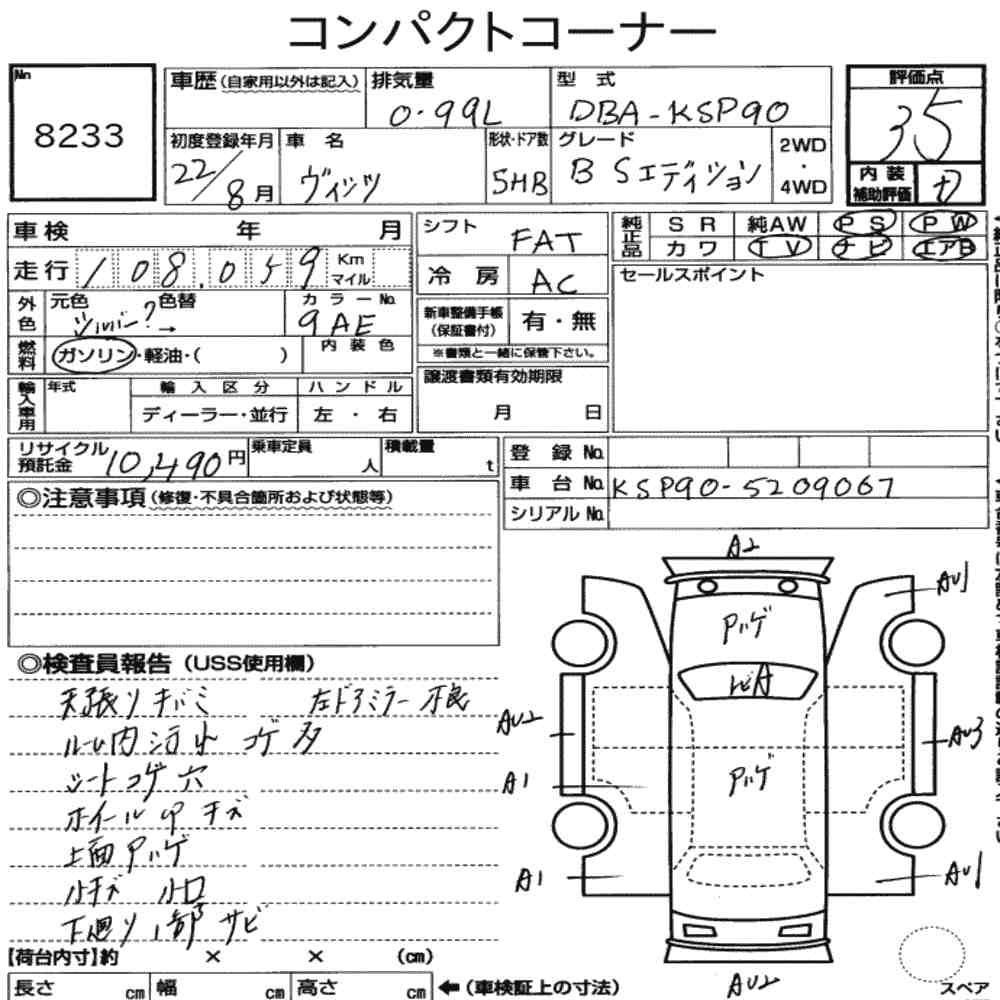 コンパクトコーナー
No
8233
車歴 (自家用以外は記入) 排気量 0.99L 型式 DBA-KSP90
評価点 35
初度登録年月 22/8月 車名 ヴィッツ 形状・ドア数 5HB グレード B Sエディション 2WD・4WD
内装補助評価 D
車検 年 月
走行 108.059 Km マイル
シフト FAT
冷房 AC
純正品 SR 純AW PS PW
カワ TV ナビ エアB
セールスポイント
外色 元色 シルバー? → 色替 カラーNo. 9AE
新車整備手帳 (保証書付) 有・無
※書類と一緒に保管下さい。
燃料 ガソリン・軽油・( ) 内装色
譲渡書類有効期限
月 日
輸入車用 年式 輸入区分 ハンドル
ディーラー・並行 左・右
リサイクル預託金 10,490円 乗車定員 人 積載量 t
登録No.
車台No. KSP90-5209067
シリアルNo.
◎注意事項 (修復・不具合箇所および状態等)
◎検査員報告 (USS使用欄)
天張りキバミ 左ドアミラー不良
ルーム内汚れ コゲ多
シートコゲ穴
ホイールCPキズ
上面アハゲ
小キズ 小凹
下廻り1部サビ
A2
AU1
アハゲ
AU2
AU3
アハゲ
A1
A1
AU1
AU2
スペア
【荷台内寸】約 × × (cm)
長さ cm 幅 cm 高さ cm ←(車検証上の寸法)